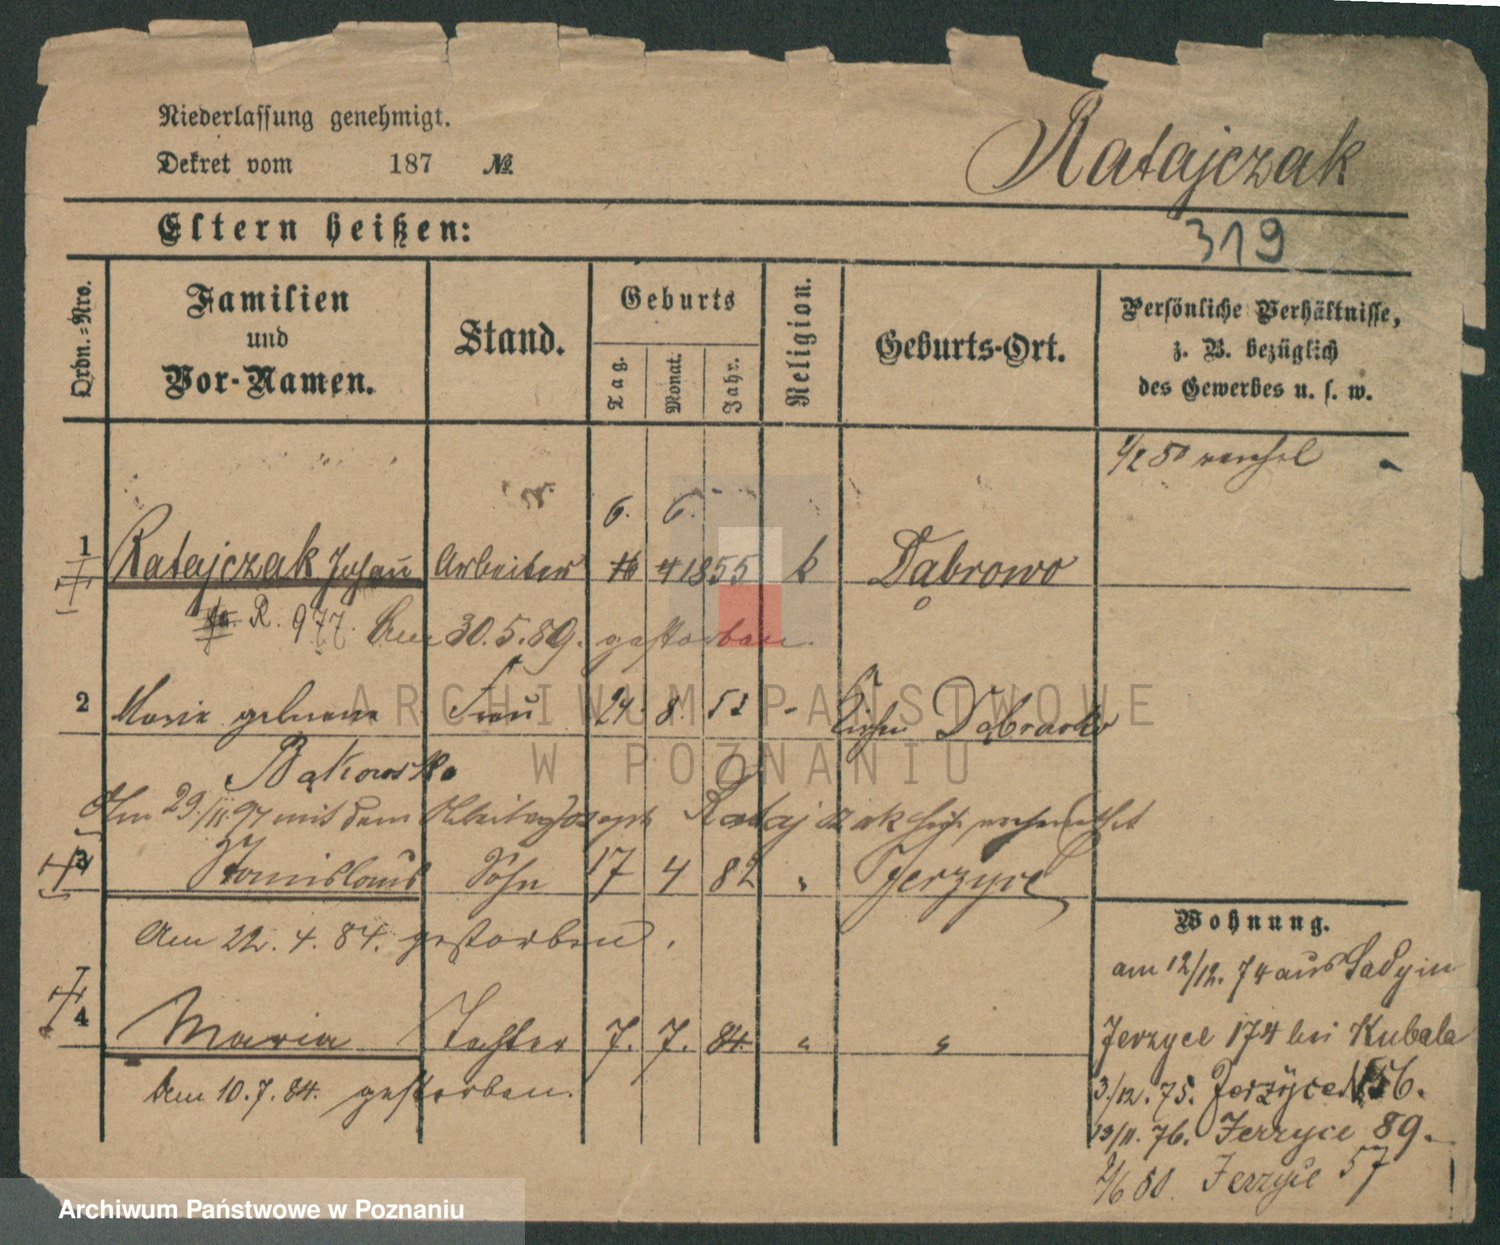 Niederlassung genehmigt.
Dekret vom 187 №
Ratajczak
Eltern heißen:
319
Ordn.=Nro.
Familien
und
Vor-Namen.
Stand.
Geburts
Tag.
Monat.
Jahr.
Religion.
Geburts-Ort.
Persönliche Verhältnisse,
z. B. bezüglich
des Gewerbes u. s. w.
6. 6.
1 Ratajczak Johann Arbeiter 1855 k Dąbrowo
R. 977. Am 30.5.89. gestorben.
2 Marie geborene Frau 24. 8. Dąbrowko
Bąkowska
Am 29/11.97 mit dem Ratajczak
3 Stanislaus Sohn 17 4 82 " Jerzyce
Am 22. 4. 84. gestorben.
4 Maria Tochter 7. 7. 84 " "
Am 10.7.84. gestorben.
Wohnung.
am 12/12. 74 aus in
Jerzyce 174 bei Kubala
3/12. 75. Jerzyce 156.
13/11. 76. Jerzyce 89.
2/6 80. Jerzyce 57
ARCHIWUM PAŃSTWOWE
W POZNANIU
Archiwum Państwowe w Poznaniu